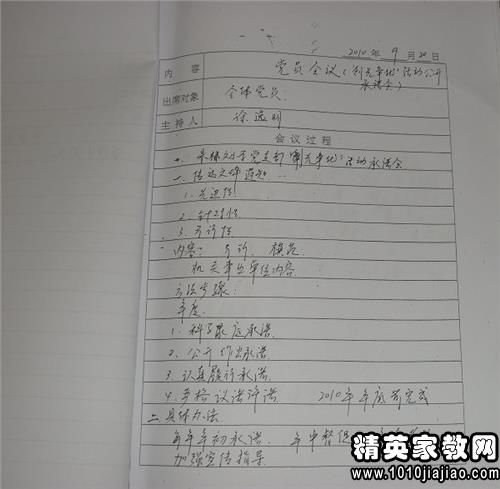 2010 年 9 月 20 日
内 容 党员会议("创先争优"活动公开
承诺会)
出席对象 全体党员
主 持 人 徐逸明
会 议 过 程
一、 党支部"创先争优"活动承诺会
一、传达文件通知
1. 先进性
2. 针对性
3. 可行性
内容:
机关事业单位内容
方法步骤:
年度:
1. 科学 承诺
2. 公开作出承诺
3. 认真履行承诺
4. 严格议诺评诺 2010年年底前完成
二、具体办法
每年年初承诺、年中督促
加强宣传指导
精英家教网
www.1010jiajiao.com